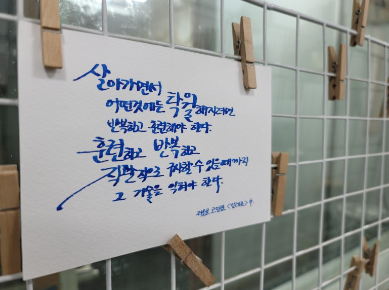 살아가면서
어떤것에든 탁월해지려면
반복하고 훈련해야 한다.
훈련하고 반복하고
직관적으로 구사할 수 있을때까지
그 기술을 익혀야 한다.